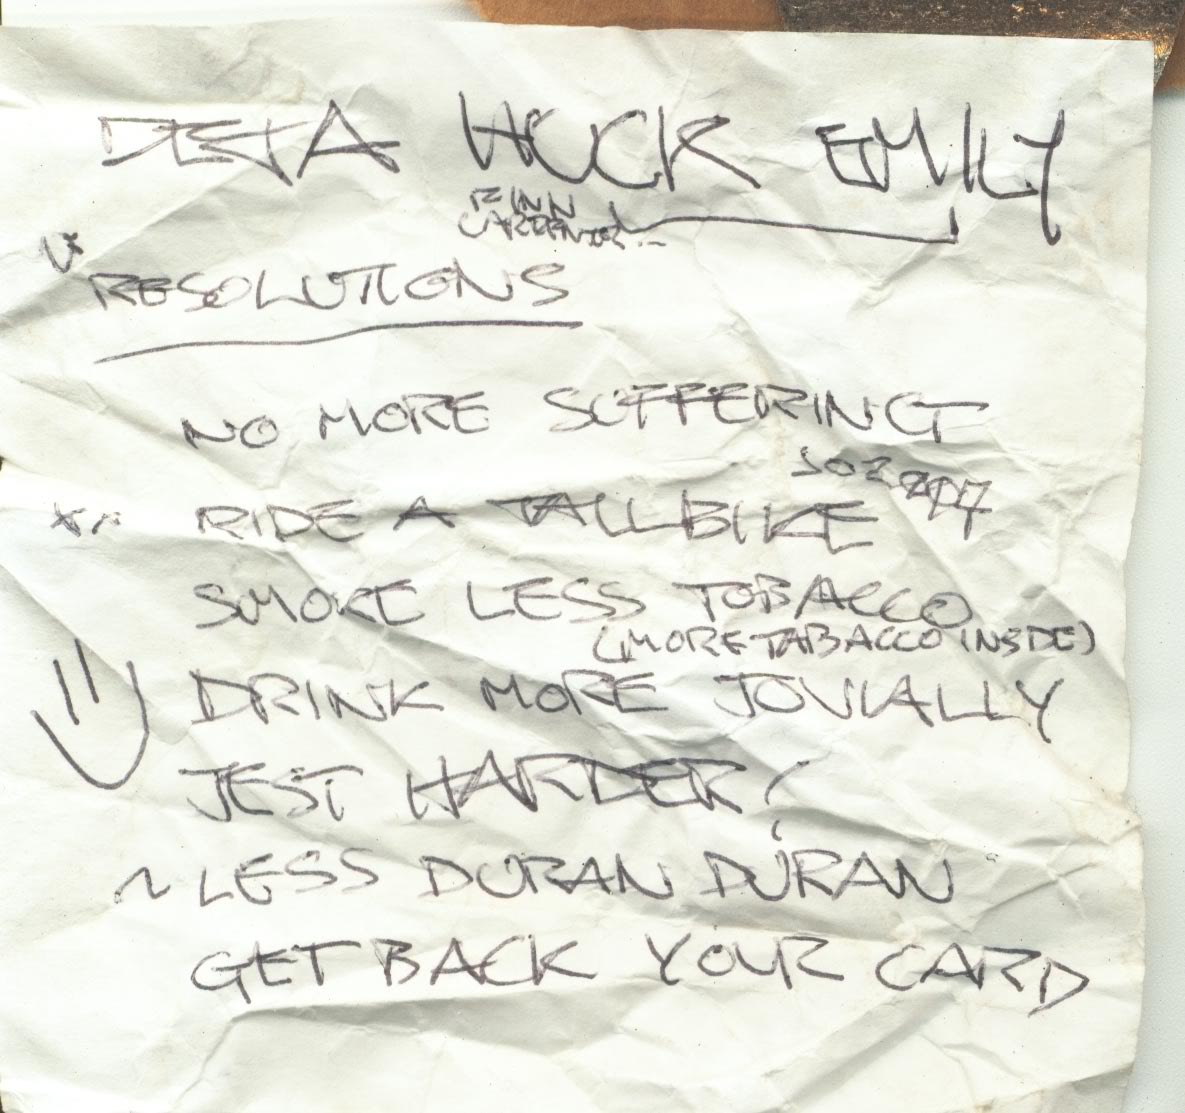 HUCK EMILY
FINN
CARPENTER...
RESOLUTIONS
NO MORE SUFFERING
RIDE A TALLBIKE
SMOKE LESS TOBACCO
(MORE TABACCO INSIDE)
DRINK MORE JOVIALLY
JEST HARDER!
~ LESS DURAN DURAN
GET BACK YOUR CARD